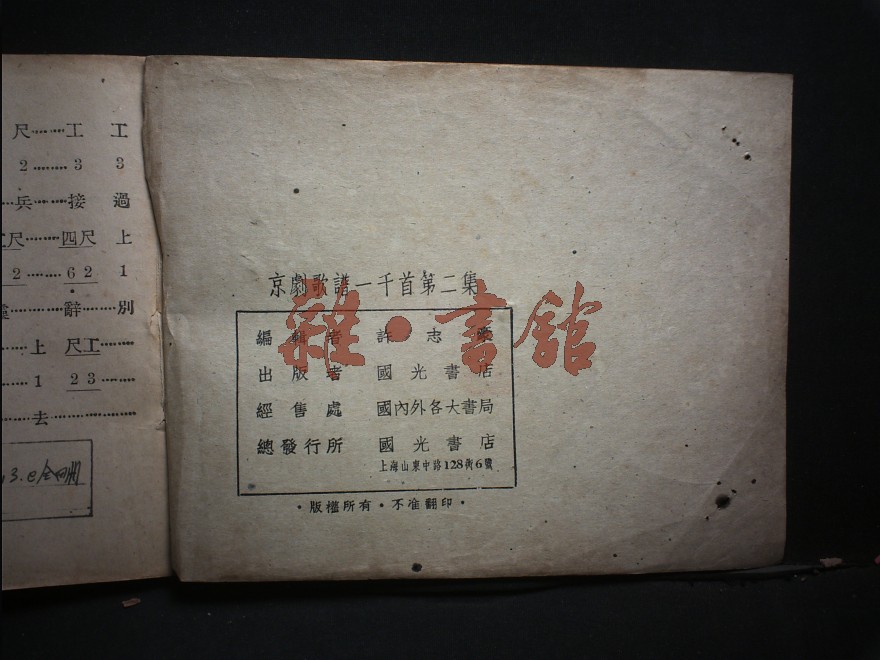 尺……工 工
2……3 3
兵……接 過
尺……四尺 上
2……6 2 1
辭……別
上 尺工……
1 2 3……
去……
京劇歌譜一千首第二集
編輯者 許志
出版者 國光書店
經售處 國內外各大書局
總發行所 國光書店
上海山東中路128衖6號
·版權所有·不准翻印·
雜·書館